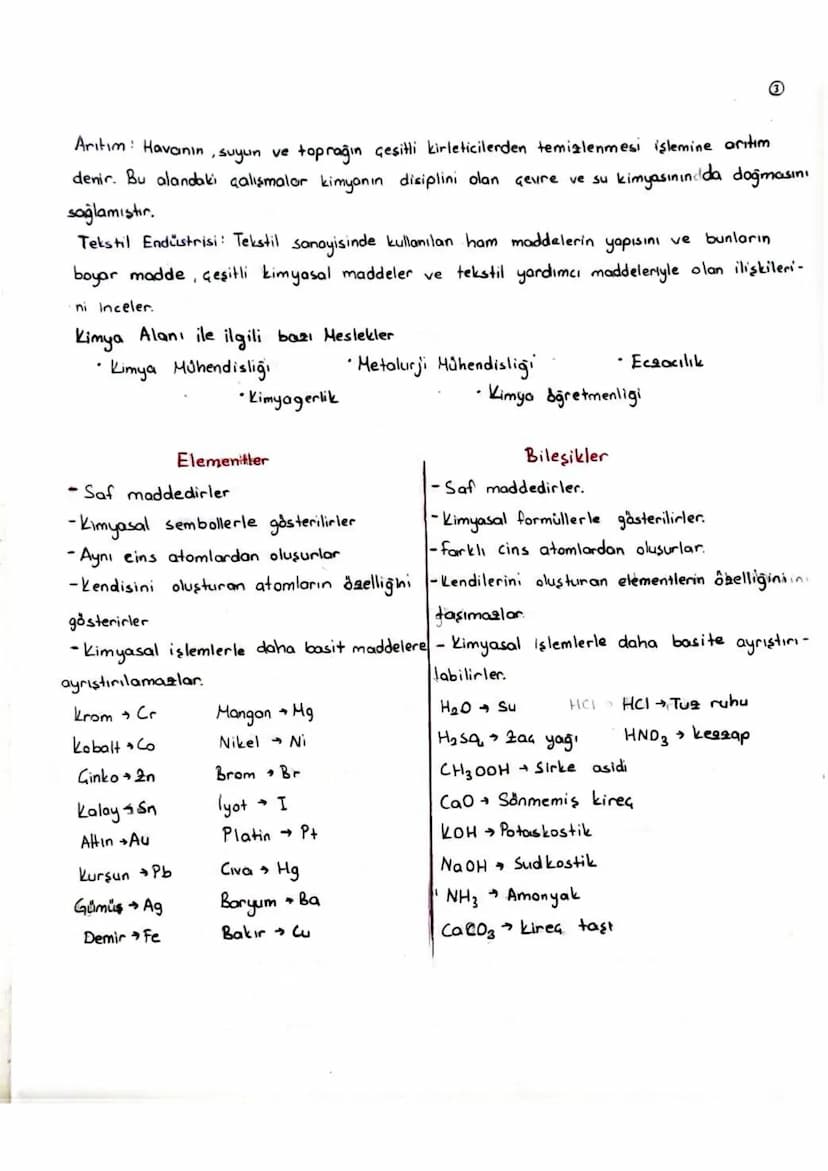 ③
Arıtım: Havanın, suyun ve toprağın çeşitli kirleticilerden temizlenmesi işlemine arıtım
denir. Bu alandaki çalışmalar kimyanın disiplini olan çevre ve su kimyasının da doğmasını
sağlamıştır.
Tekstil Endüstrisi: Tekstil sanayisinde kullanılan ham maddelerin yapısını ve bunların
boyar madde, çeşitli kimyasal maddeler ve tekstil yardımcı maddeleriyle olan ilişkileri-
ni inceler.
Kimya Alanı ile ilgili bazı Meslekler
• Kimya Mühendisliği • Metalurji Mühendisliği • Eczacılık
• Kimyagerlik • Kimya öğretmenligi
Elementler
- Saf maddedirler
- Kimyasal sembollerle gösterilirler
- Aynı cins atomlardan oluşurlar
- Kendisini oluşturan atomların özelliğini
gösterirler
- Kimyasal işlemlerle daha basit maddelere
ayrıştırılamazlar.
Krom → Cr Mangan → Mg
Kobalt → Co Nikel → Ni
Çinko → Zn Brom → Br
Kalay → Sn İyot → I
Altın → Au Platin → Pt
Kurşun → Pb Cıva → Hg
Gümüş → Ag Baryum → Ba
Demir → Fe Bakır → Cu
Bileşikler
- Saf maddedirler.
- Kimyasal formüllerle gösterilirler.
- farklı cins atomlardan oluşurlar.
- Kendilerini oluşturan elementlerin özelliğini
taşımazlar.
- Kimyasal işlemlerle daha basite ayrıştırı-
labilirler.
H₂O → Su HCl HCl → Tuz ruhu
H₂SO₄ → Zaç yağı HNO₃ → kezzap
CH₃OOH → Sirke asidi
CaO → Sönmemiş kireç
KOH → Potaskostik
NaOH → Sudkostik
NH₃ → Amonyak
CaCO₃ → kireç taşı